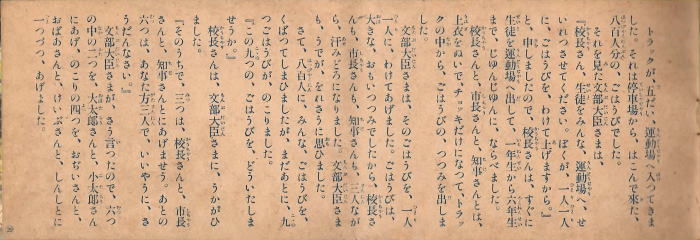 トラックが、五だい、運動場へ入つてきま
した。それは停車場から、はこんで來た、
八百人分の、ごはうびでした。
それを見た文部大臣さまは、
『校長さん、生徒をみんな、運動場へ、せ
いれつさせてください。ぼくが、一人一人
に、ごはうびを、わけて上げますから。』
と、申しましたので、校長さんは、すぐに
生徒を運動場へ出して、一年生から六年生
まで、じゆんじゆんに、ならべました。
校長さんと、市長さんと、知事さんとは、
上衣をぬいでチョッキだけになつて、トラッ
クの中から、ごはうびの、つつみを出しま
した。
文部大臣さまは、そのごはうびを、一人
一人に、わけてあげました。ごはうびは、
大きな、おもいつつみでしたから、校長さ
んも、市長さんも、知事さんも、三人なが
ら、汗みどろになりました。文部大臣さま
も、うでが、をれさうに思ひました。
さて、八百人に、みんな、ごはうびを、
くばつてしまひましたが、まだあとに、九
つごはうびが、のこりました。
『この九つの、ごはうびを、どういたしま
せうか。』
校長さんは、文部大臣さまに、うかがひ
ました。
『そのうちで、三つは、校長さんと、市長
さんと、知事さんとにあげませう。あとの
六つは、あなた方三人で、いいやうに、さ
うだんなさい。』
文部大臣さまが、さう言つたので、六つ
の中の二つを、大太郎さんと、小太郎さん
にあげ、のこりの四つを、おぢいさんと、
おばあさんと、けいぶさんと、しんしとに
一つづつ、あげました。
29